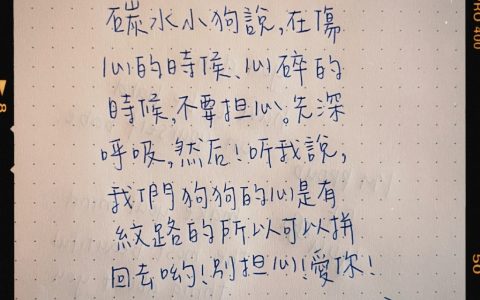 碳水小狗說,在傷
心的時候、心碎的
時候,不要担心。先深
呼吸,然后!听我說,
我們狗狗的心是有
紋路的所以可以拼
回去喲!別担心!愛你!
400
8
50